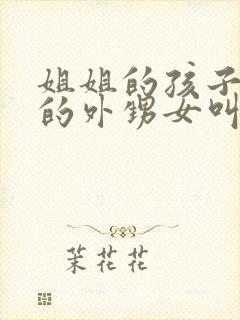 姐姐的孩子
的外甥女叫
茉花花